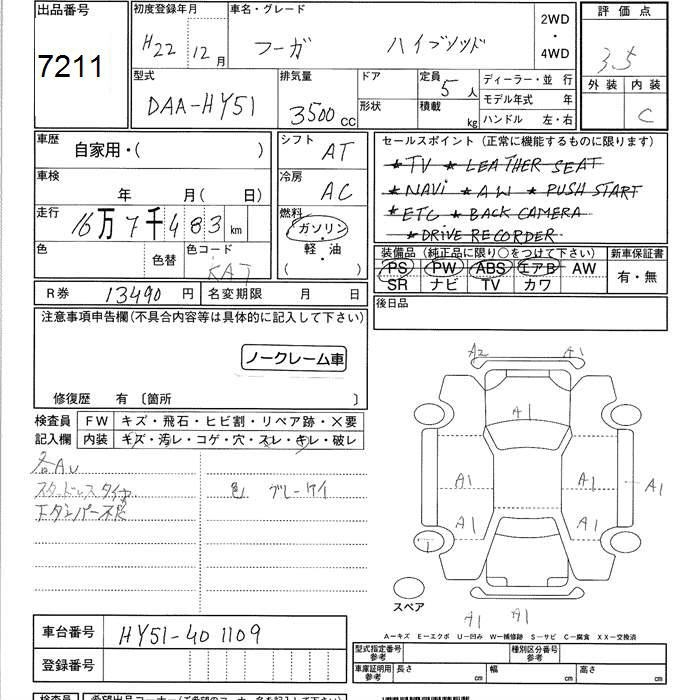 出品番号
7211
初度登録年月
H22年 12月
車名・グレード
フーガ ハイブリッド
2WD
・
4WD
評価点
3.5
外装 内装
C
型式
DAA-HY51
排気量
3500cc
ドア
形状
定員 5人
積載 kg
ディーラー・並 行
モデル年式 年
ハンドル 左・右
車歴
自家用・( )
シフト
AT
車検
年 月( 日)
冷房
AC
走行
16万7千483km
燃料
ガソリン
・
軽・油
( )
色
色替
色コード
KAJ
セールスポイント (正常に機能するものに限ります)
★TV ★LEATHER SEAT
★NAVi ★AW ★PUSH START
★ETC ★BACK CAMERA
★DRIVE RECORDER
装備品 (純正品に限り○をつけて下さい)
PS PW ABS エアB AW
SR ナビ TV カワ
新車保証書
有・無
R券 13490円
名変期限 月 日
後日品
注意事項申告欄(不具合内容等は具体的に記入して下さい)
ノークレーム車
修復歴 有 〔箇所 〕
検査員
記入欄
FW キズ・飛石・ヒビ割・リペア跡・×要
内装 キズ・汚レ・コゲ・穴・スレ・キレ・破レ
各AU
スタッドレスタイヤ
色 グレーケイ
A2 A1
A1
A1 A1 A1
A1 A1
スペア
A1 A1
A―キズ E―エクボ U―凹み W―補修跡 S―サビ C―腐食 XX―交換済
車台番号 HY51-401109
登録番号
型式指定番号
参考
種別区分番号
参考
車庫証明用
参考
長さ cm
幅 cm
高さ cm
検査員
希望出品コーナー(ご希望のコーナー名を記入して下さい)